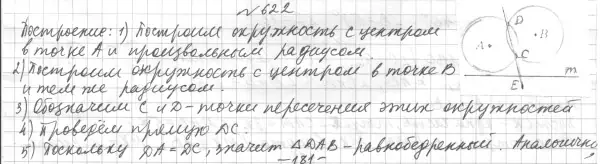 № 622
Построение: 1) Построим окружность с центром
в точке А и произвольным радиусом.
2) Построим окружность с центром в точке В
и тем же радиусом.
3) Обозначим С и D - точки пересечения этих окружностей
4) Проведём прямую DC.
5) Поскольку DA = DC, значит ΔDAB - равнобедренный. Аналогично
- 181 -
A
B
D
C
E
m